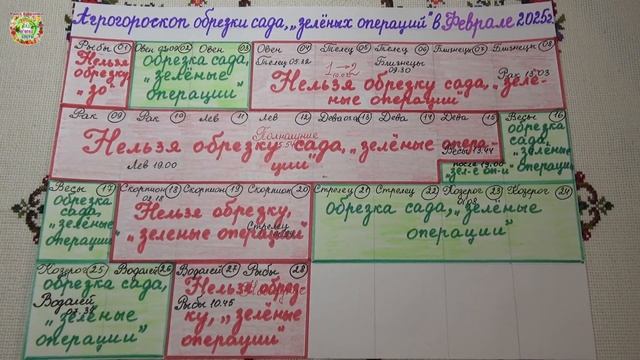 Агрогороскоп обрезки сада, „зелёных операций" в Феврале 2025г.
Рыбы 01 Овен 02 Овен 03 Овен 04 Телец 05 Телец 06 Близнецы 07 Близнецы 08
Нельзя обрезку, „зо"
обрезка сада, „зелёные операции"
Телец Близнецы Рак 15.03
1→2
Нельзя обрезку сада, „зеле-
ные операции"
Рак 09 Рак 10 Лев 11 Лев 12 Дева 13 Дева 14 Дева 15 Весы 16
Полнолуние
Нельзя обрезку сада, „зелёные опера-
ции"
Лев 19.00
Весы
после 19.00
„зел-е оп-и"
обрезка сада, „зелёные операции"
Весы 17 Скорпион 18 Скорпион 19 Скорпион 20 Стрелец 21 Стрелец 22 Козерог 23 Козерог 24
обрезка сада, „зелёные операции"
Нельзя обрезку,
„зеленые операции"
Стрелец
обрезка сада, „зелёные
операции"
Козерог 25 Водолей 26 Водолей 27 Рыбы 28
обрезка сада,
Водолей
„зелёные
операции"
Нельзя обрез-
Рыбы 10.45
ку, „зелёные
операции"